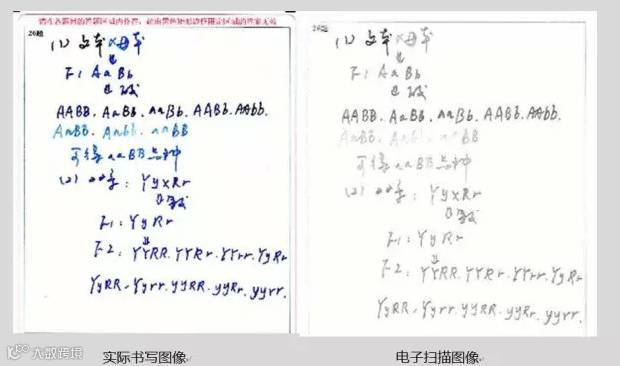 请在各题目的答题区域内作答，超出黑色矩形边框限定区域的答案无效
26题
(1) 父本×母本
↓
F1 AaBb
AABB. AaBB. aaBb. AABb. AAbb.
AaBb. Aabb. aaBB
可得aaBB品种
(2) : YyxRr
F1: YyRr
F2: YYRR. YYRr. YYrr. YyRr
YyRR. Yyrr. yyRR. yyRr. yyrr.
26题
(1) 父本×母本
↓
F1 AaBb
AABB. AaBB. aaBb. AABb. AAbb.
AaBb. Aabb. aaBB
可得aaBB品种
(2) : YyxRr
F1: YyRr
F2: YYRR. YYRr. YYrr. YyRr
YyRR. Yyrr. yyRR. yyRr. yyrr.
实际书写图像
电子扫描图像
大数跨境